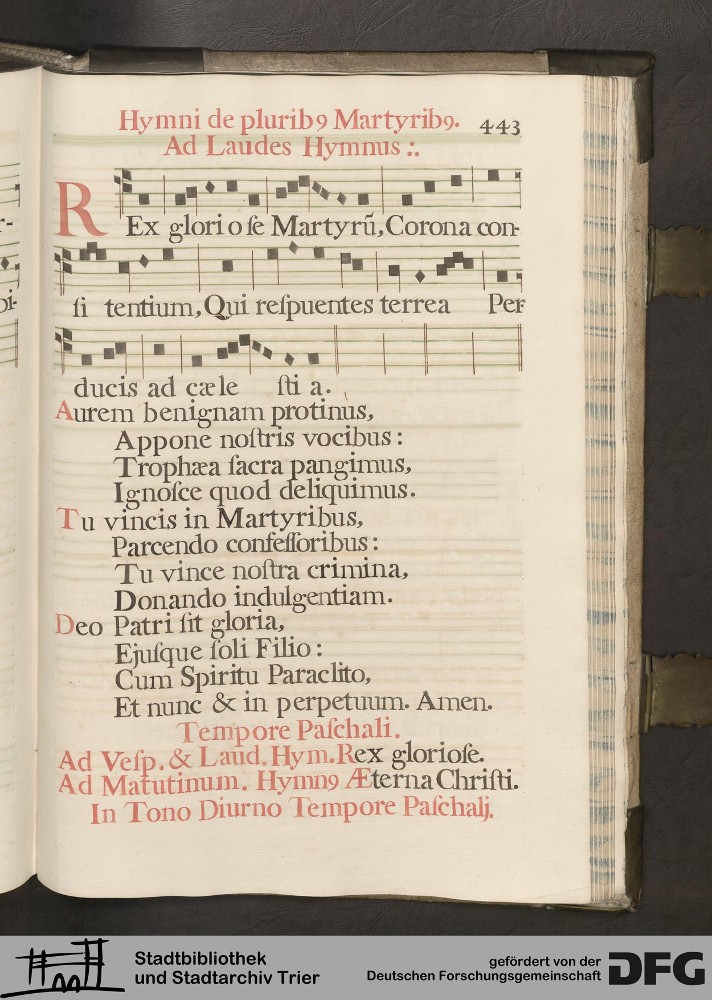 Hymni de plurib9 Martyrib9.
443
Ad Laudes Hymnus :.
REx glori o ſe Martyrũ, Corona con-
ſi tentium, Qui reſpuentes terrea Per-
ducis ad cæle ſti a.
Aurem benignam protinus,
Appone noſtris vocibus :
Trophæa ſacra pangimus,
Ignoſce quod deliquimus.
Tu vincis in Martyribus,
Parcendo confeſſoribus :
Tu vince noſtra crimina,
Donando indulgentiam.
Deo Patri ſit gloria,
Ejuſque ſoli Filio :
Cum Spiritu Paraclito,
Et nunc & in perpetuum. Amen.
Tempore Paſchali.
Ad Veſp. & Laud. Hym. Rex glorioſe.
Ad Matutinum. Hymn9 Æterna Chriſti.
In Tono Diurno Tempore Paſchalj.
Stadtbibliothek
und Stadtarchiv Trier
gefördert von der
Deutschen Forschungsgemeinschaft
DFG